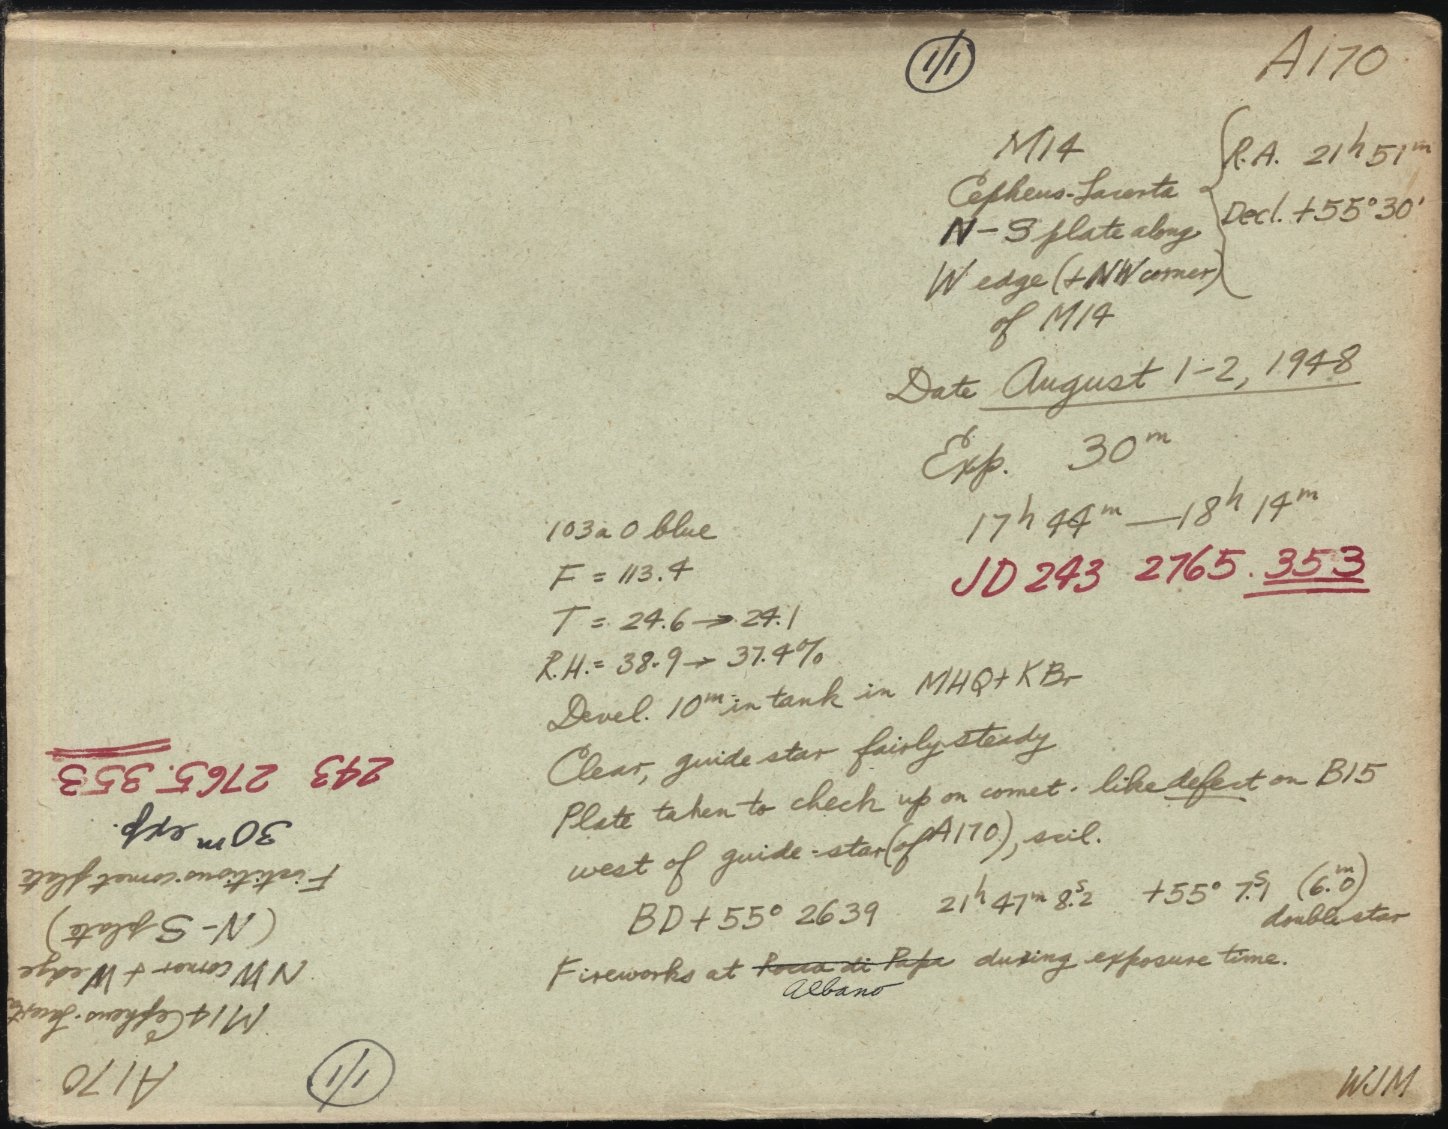 1/1
A170
M14
Cepheus-Lacerta
N-S plate along
W edge (+NW corner)
of M14
R.A. 21h 51m
Decl. +55° 30'
Date August 1-2, 1948
Exp. 30m
17h 44m — 18h 14m
JD 243 2765.353
103a O blue
F = 113.4
T = 24.6 → 24.1
R.H. = 38.9 → 37.4%
Devel. 10m in tank in MHQ + KBr
Clear, guide star fairly steady
Plate taken to check up on comet-like defect on B15
west of guide-star (of A170), scil.
BD + 55° 2639 21h 47m 8s.2 +55° 7.1 (6m.0)
double star
Fireworks at Rocca di Papa during exposure time.
Albano
WJM
1/1
A170
M14 Cepheus-Lacerta
NW corner + W edge
(N-S plate)
Fictitious comet plate
30m exp.
243 2765.353